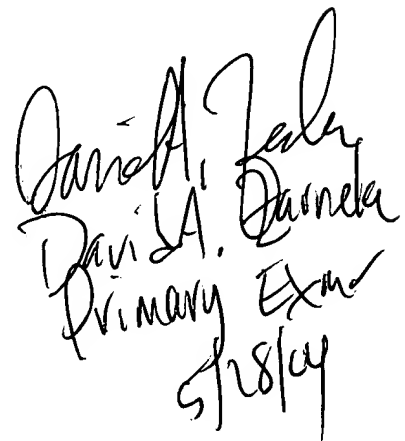 David A.
David A. Zarneke
Primary Exmr
5/28/04